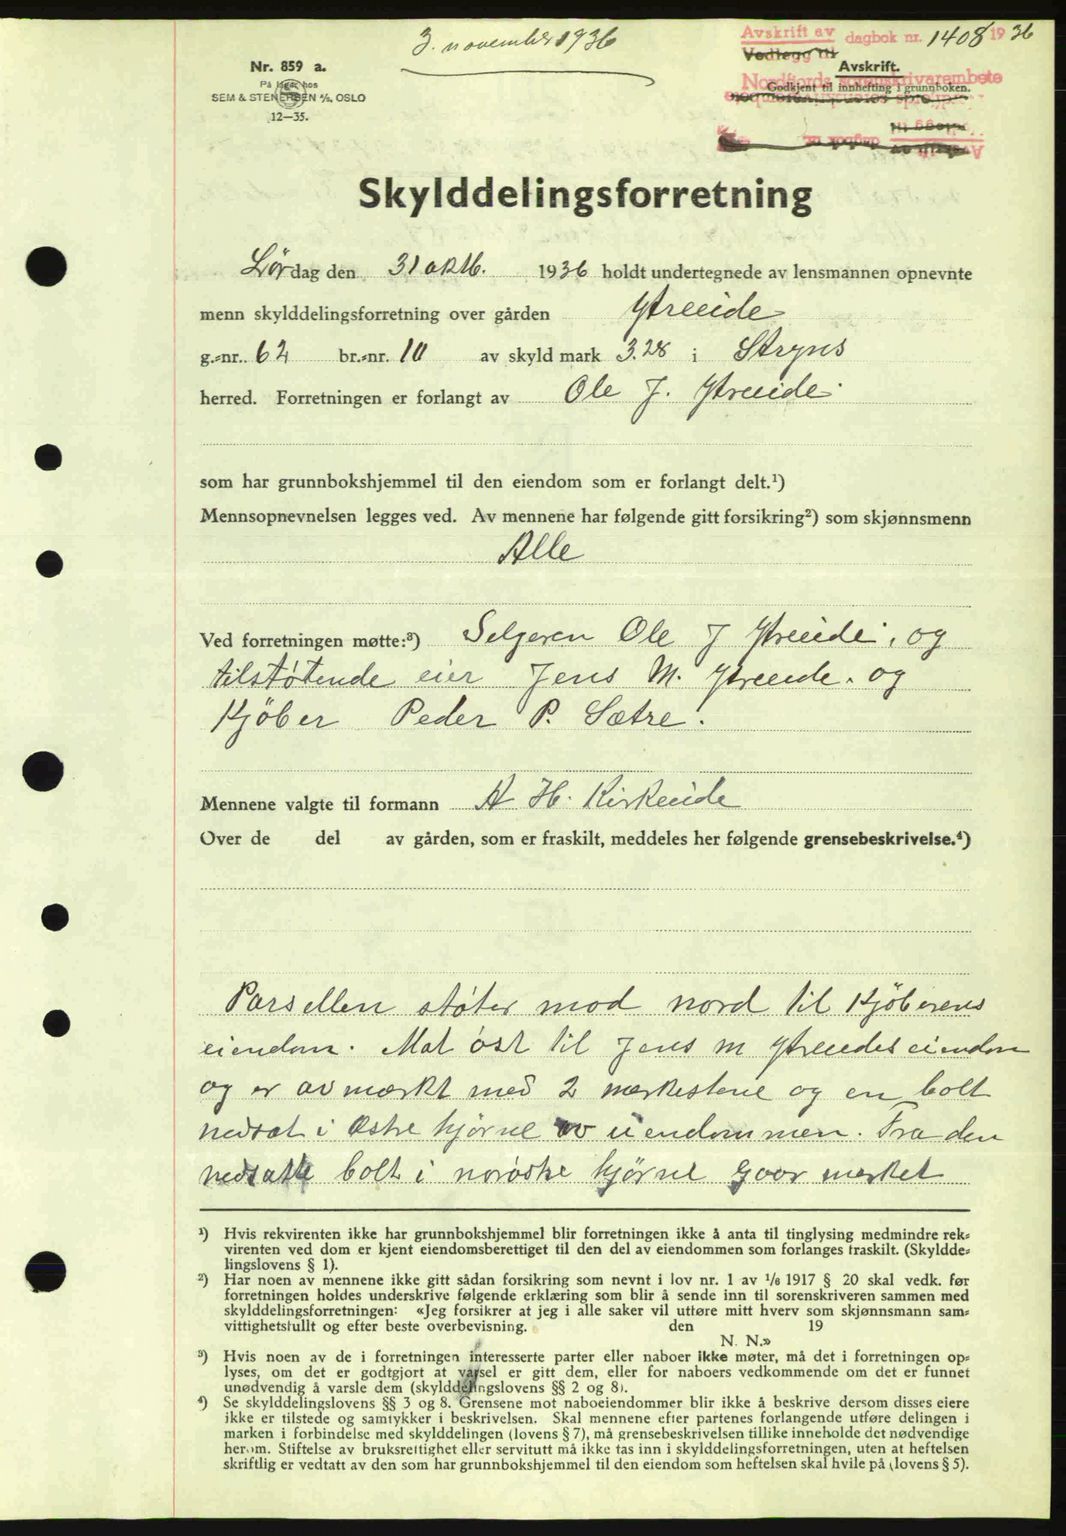 3. november 1936
Avskrift av dagbok nr. 1408 1936
Vedlegg til
Nordfjords sorenskriverembete
Nr. 859 a.
På lager hos
SEM & STENERSEN A/S, OSLO
12—35.
Avskrift.
Godkjent til innhefting i grunnboken.
Skylddelingsforretning
Lørdag den 31 oktb. 1936 holdt undertegnede av lensmannen opnevnte
menn skylddelingsforretning over gården Ytreeide
g.-nr. 62 br.-nr. 10 av skyld mark 3.28 i Stryns
herred. Forretningen er forlangt av Ole J. Ytreeide.
som har grunnbokshjemmel til den eiendom som er forlangt delt.¹)
Mennsopnevnelsen legges ved. Av mennene har følgende gitt forsikring²) som skjønnsmenn
Alle
Ved forretningen møtte:³) Selgeren Ole J Ytreeide, og
tilstøtende eier Jens M. Ytreeide. og
Kjöber Peder P. Sætre.
Mennene valgte til formann A H. Kirkeeide
Over de del av gården, som er fraskilt, meddeles her følgende grensebeskrivelse.⁴)
Parsellen støter mod nord til Kjöberens
eiendom. Mot öst til Jens M Ytreeides eiendom
og er avmærkt med 2 merkestene og en bolt
nedsat i östre hjørne av eiendommen. Fra den
nedsatte bolt i norøstre hjørne gaar merket
¹) Hvis rekvirenten ikke har grunnbokshjemmel blir forretningen ikke å anta til tinglysing medmindre rek-
virenten ved dom er kjent eiendomsberettiget til den del av eiendommen som forlanges fraskilt. (Skyldde-
lingslovens § 1).
²) Har noen av mennene ikke gitt sådan forsikring som nevnt i lov nr. 1 av 1/6 1917 § 20 skal vedk. før
forretningen holdes underskrive følgende erklæring som blir å sende inn til sorenskriveren sammen med
skylddelingsforretningen: «Jeg forsikrer at jeg i alle saker vil utføre mitt hverv som skjønnsmann sam-
vittighetsfullt og efter beste overbevisning. den 19
N. N.»
³) Hvis noen av de i forretningen interesserte parter eller naboer ikke møter, må det i forretningen op-
lyses, om det er godtgjort at varsel er gitt dem, eller for naboers vedkommende om det er funnet
unødvendig å varsle dem (skylddelingslovens §§ 2 og 8).
⁴) Se skylddelingslovens §§ 3 og 8. Grensene mot naboeiendommer blir ikke å beskrive dersom disses eiere
ikke er tilstede og samtykker i beskrivelsen. Skal mennene efter partenes forlangende utføre delingen i
marken i forbindelse med skylddelingen (lovens § 7), må grensebeskrivelsen tillike inneholde det nødvendige
herom. Stiftelse av bruksrettighet eller servitutt må ikke tas inn i skylddelingsforretningen, uten at heftelsen
skriftlig er vedtatt av den som har grunnbokshjemmel til den eiendom som heftelsen skal hvile på (lovens § 5).